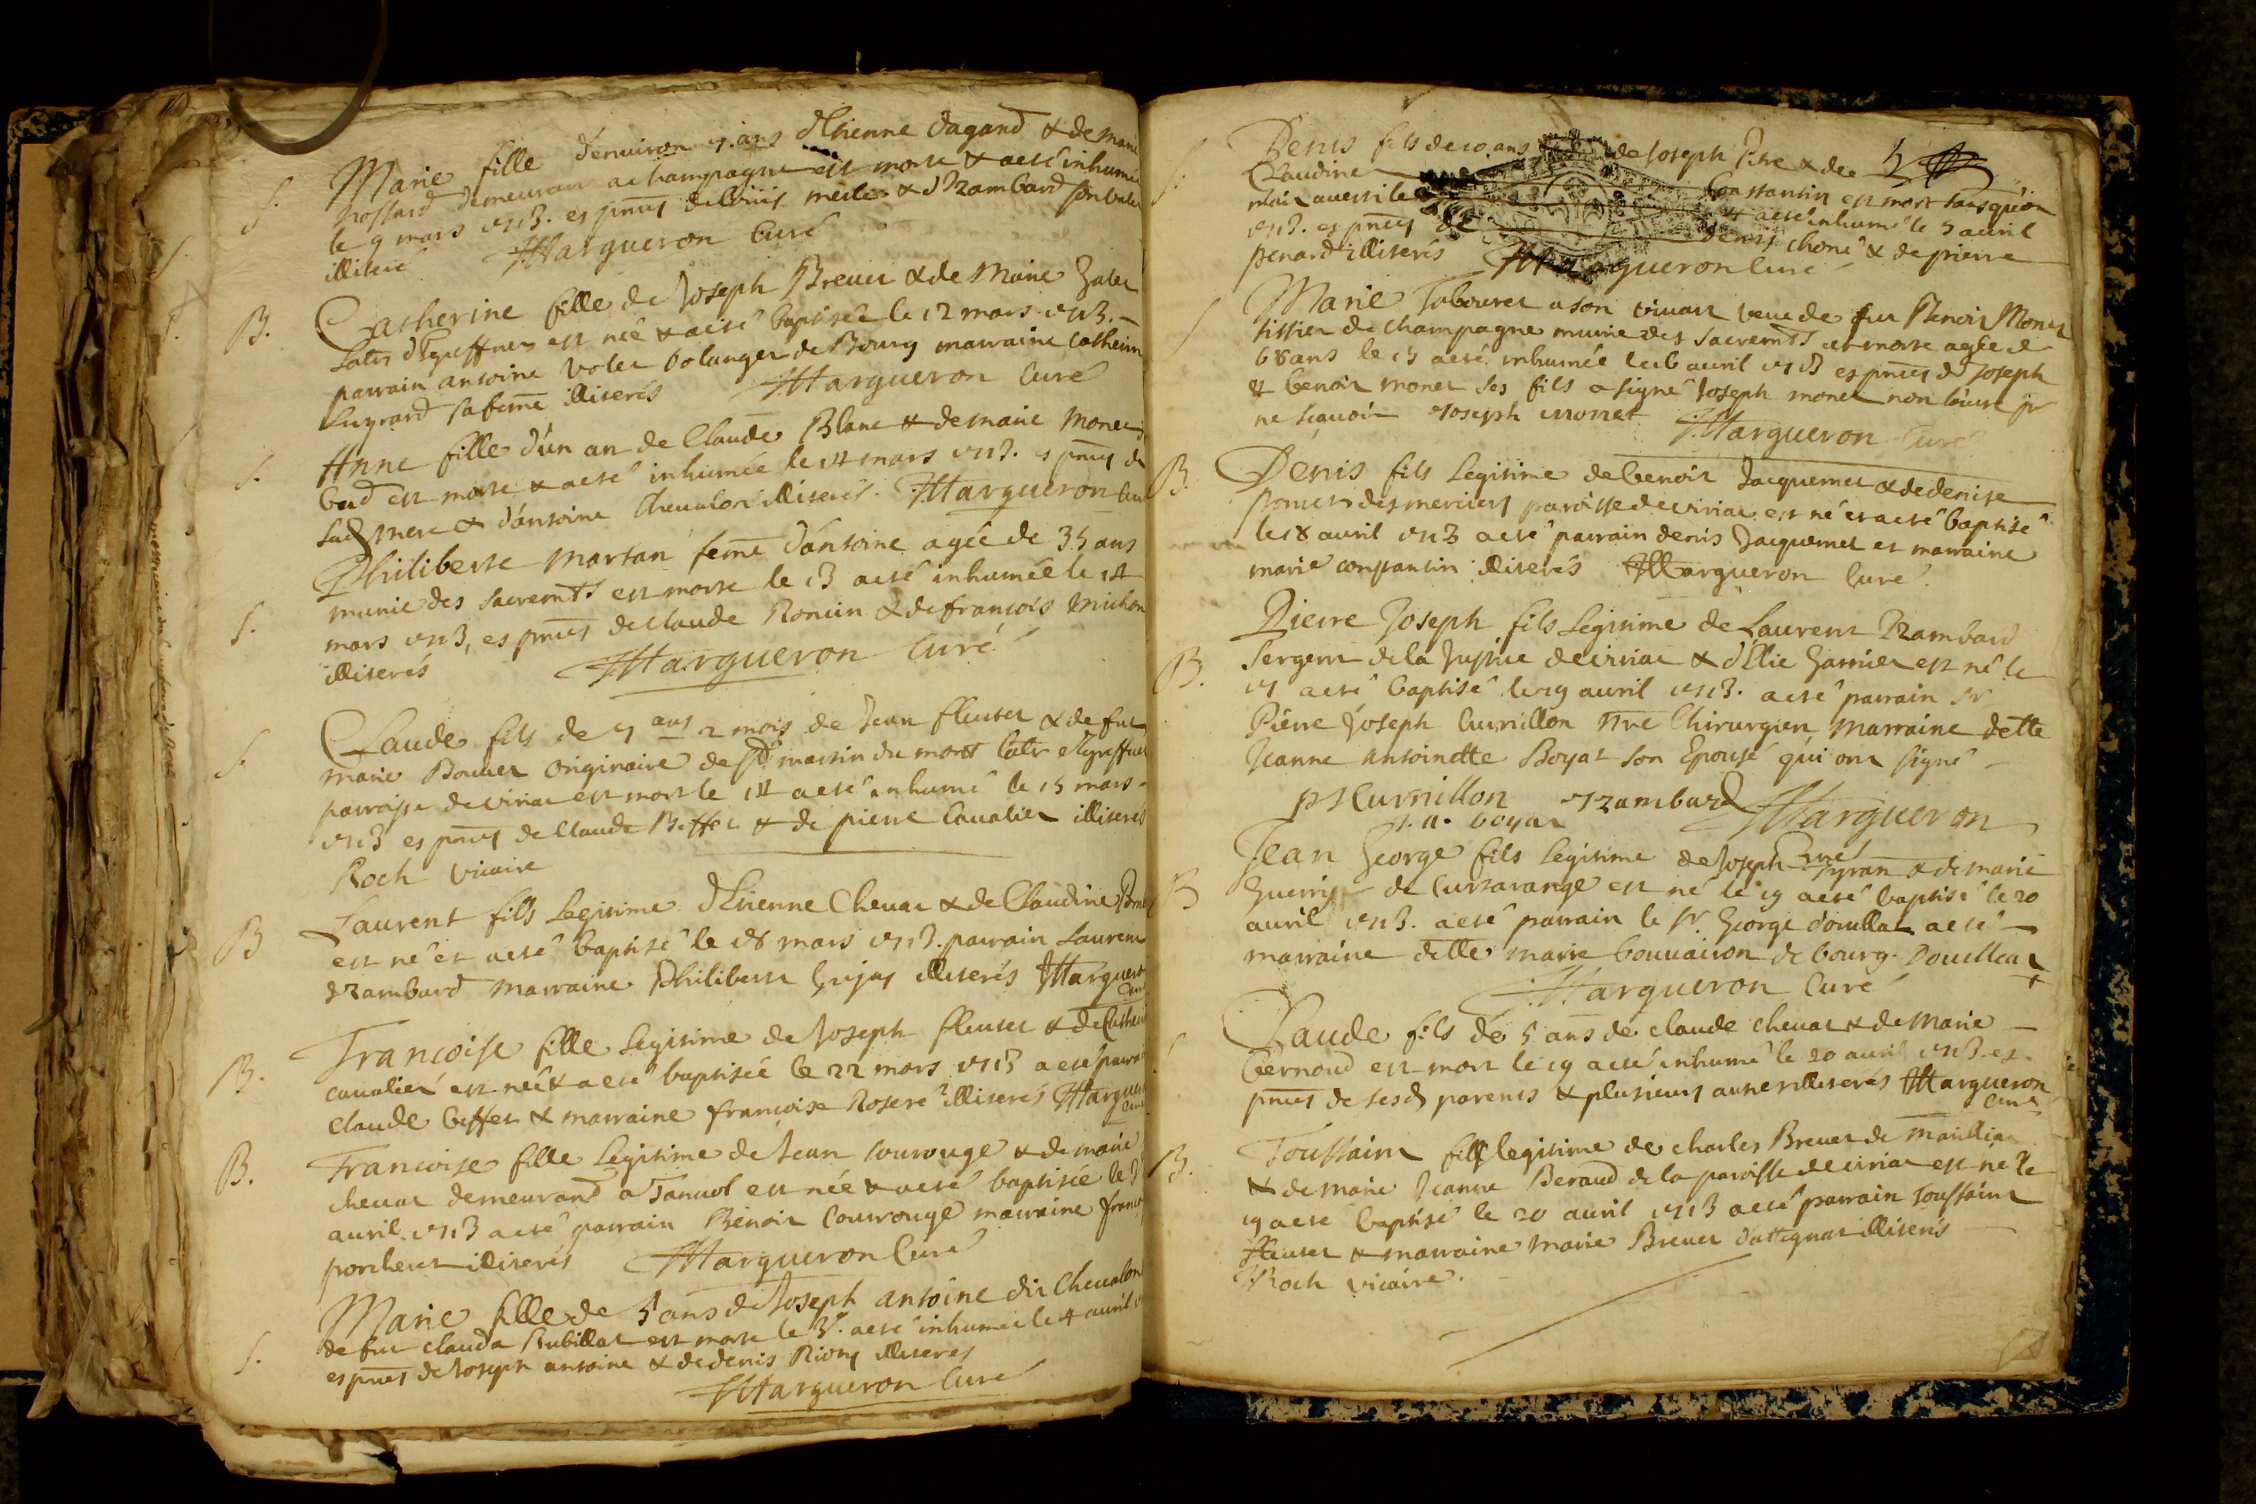 S.
Marie fille d'environ 7 ans d'Etienne dagand & de marie
demeurans a champagne est morte & a eté inhumée
le 9 mars 1713. es pnces de & d'Rambard
illiteré Margueron Curé
B.
Catherine fille de Joseph Brevet & de Marie
est née & a eté baptisée le 12 mars 1713.
parrain antoine Volet bolanger de Bourg marraine Catherine
sa feme illiterés Margueron Curé
S.
Anne fille d'un an de Claude Blanc & de marie Monet
est morte & a eté inhumée le 14 mars 1713. es pnces de
sad mere & d'antoine Chevalon illiterés. Margueron Curé
S.
Philiberte Martan feme d'antoine agée de 35 ans
munie des sacremts est morte le 13 a eté inhumée le 14
mars 1713, es pnces de Claude Ronin & de francois Michon
illiterés Margueron Curé
S.
Claude fils de 7 ans 2 mois de Jean fleutet & de fut
marie Bouvet originaire de St martin du mont
parroisse de viriat est mort le 14 a eté inhumé le 15 mars
1713 es pnces de Claude Beffet & de pierre Cavalier illiterés
Roch vicaire
B
Laurent fills legitime d'Etienne Chevat & de Claudine
est né et a eté baptisé le 18 mars 1713. parrain Laurent
Rambard marraine Philiberte illiterés Margueron
Curé
B.
Francoise fille legitime de Joseph fleutet & de
cavalier est née & a eté baptisée le 22 mars 1713 a eté parrain
claude beffet & marraine francoise Roseré illiterés Margueron
Curé
B.
Francoise fille legitime de Jean Courouge & de marie
chevat demeurand a Tanvol est née & a eté baptisée le 3
avril 1713 a eté parrain Benoit Courrouge marraine
porcheret illiterés Margueron Curé
S.
Marie fille de 5 ans de Joseph antoine dit Chevalon
de fut clauda Rubillat est morte le 3. a eté inhumée le 4 avril
es pnces de Joseph antoine & de denis Riony illiterés
Margueron Curé
S.
Denis fils de 10 ans de Joseph Pitre & de
Claudine Constantin est mort sans qu'on
l'ait averti le & a eté inhumé le 5 avril
1713. es pnces de denis choné & de pierre
penard illiterés Margueron Curé
S
Marie Tabouret a son vivant veuve de fut Benoit Monet
tissier de champagne munie des sacremts est morte agée de
68 ans le 15 a eté inhumée le 16 avril 1713 es pnces de Joseph
& benoit monet ses fils a signé Joseph monet non l'autre pr
ne sçavoir Joseph monet Margueron Curé
B.
Denis fils legitime de benoit Jacquemet & de denise
des merciers paroisse de viriat est né et a eté baptisé
le 18 avril 1713 a eté parrain denis Jacquemet et marraine
marie constantin illiterés Margueron Curé.
B.
Pierre Joseph fils legitime de Laurent Rambard
Sergent de la Justice de viriat & d'Elie Garnier est né le
17 a eté baptisé le 19 avril 1713. a eté parrain Sr
Pierre Joseph Curnillon Mre Chirurgien Marraine delle
Jeanne Antoinette Boyat son Epouse qui ont signé
PJ Curnillon Rambard Margueron
J. a. boyat
B
Jean George fils legitime de Joseph Tyran & de marie
Guerry de Curtarange est né le 19 a eté baptisé le 20
avril 1713. a eté parrain le Sr. George douillat a eté
marraine delle marie bouvairon de bourg. Douillat
Margueron Curé
Claude fils de 5 ans de claude chevat & de Marie
bernoud est mort le 19 a eté inhumé le 20 avril 1713. es
pnces de sesd parents & plusieurs autres illiterés Margueron
Curé
B.
Toussaint fils legitime de charles Brevet de
& de Marie Jeanne Beraud de la paroisse de viriat est né le
19 a eté baptisé le 20 avril 1713 a eté parrain Toussaint
fleutet & marraine Marie Brevet d'attignat illiterés
Roch vicaire.